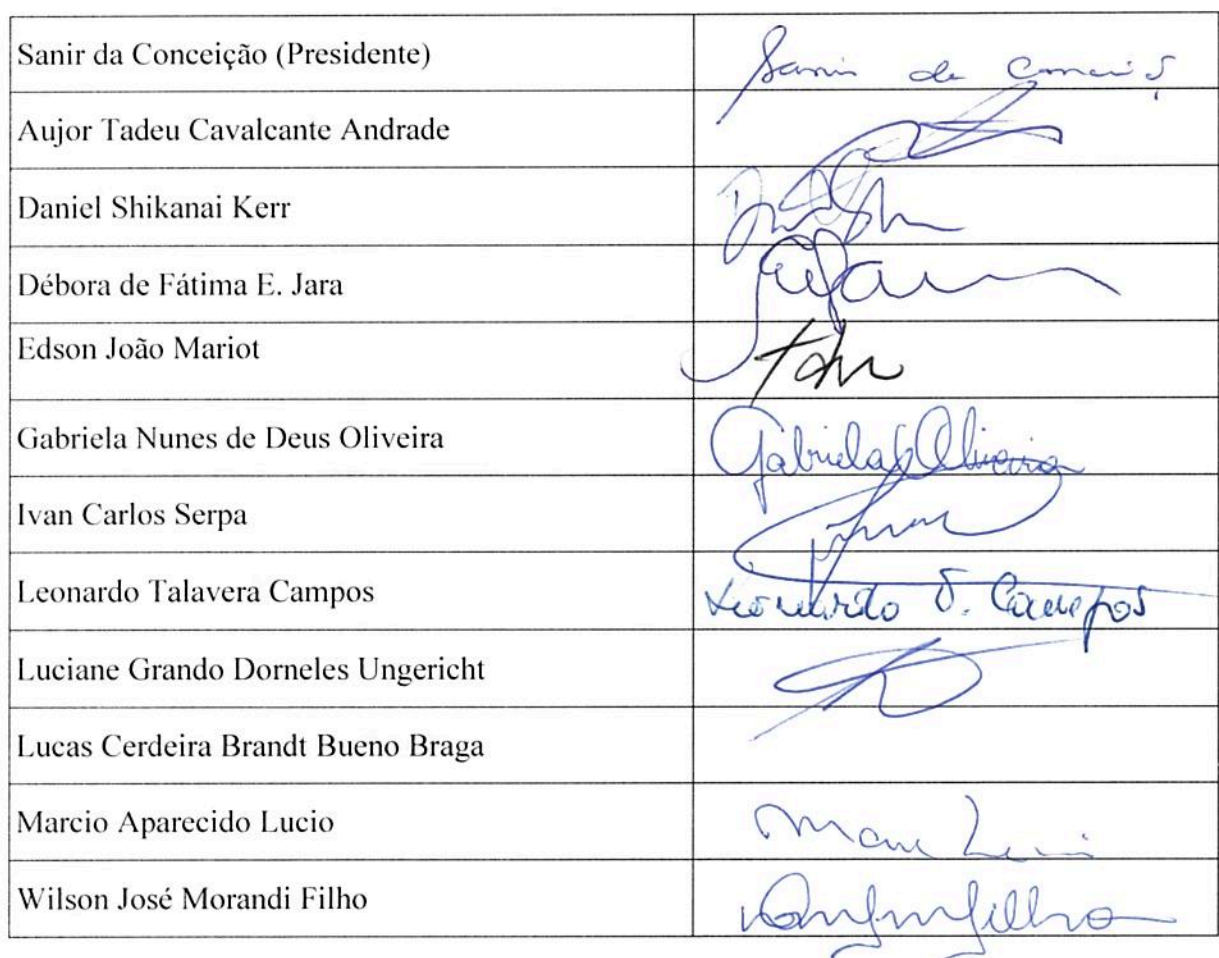 Sanir da Conceição (Presidente) Sanir da Conceiç
Aujor Tadeu Cavalcante Andrade
Daniel Shikanai Kerr
Débora de Fátima E. Jara
Edson João Mariot
Gabriela Nunes de Deus Oliveira Gabriela Oliveira
Ivan Carlos Serpa
Leonardo Talavera Campos Leonardo T. Campos
Luciane Grando Dorneles Ungericht
Lucas Cerdeira Brandt Bueno Braga
Marcio Aparecido Lucio
Wilson José Morandi Filho